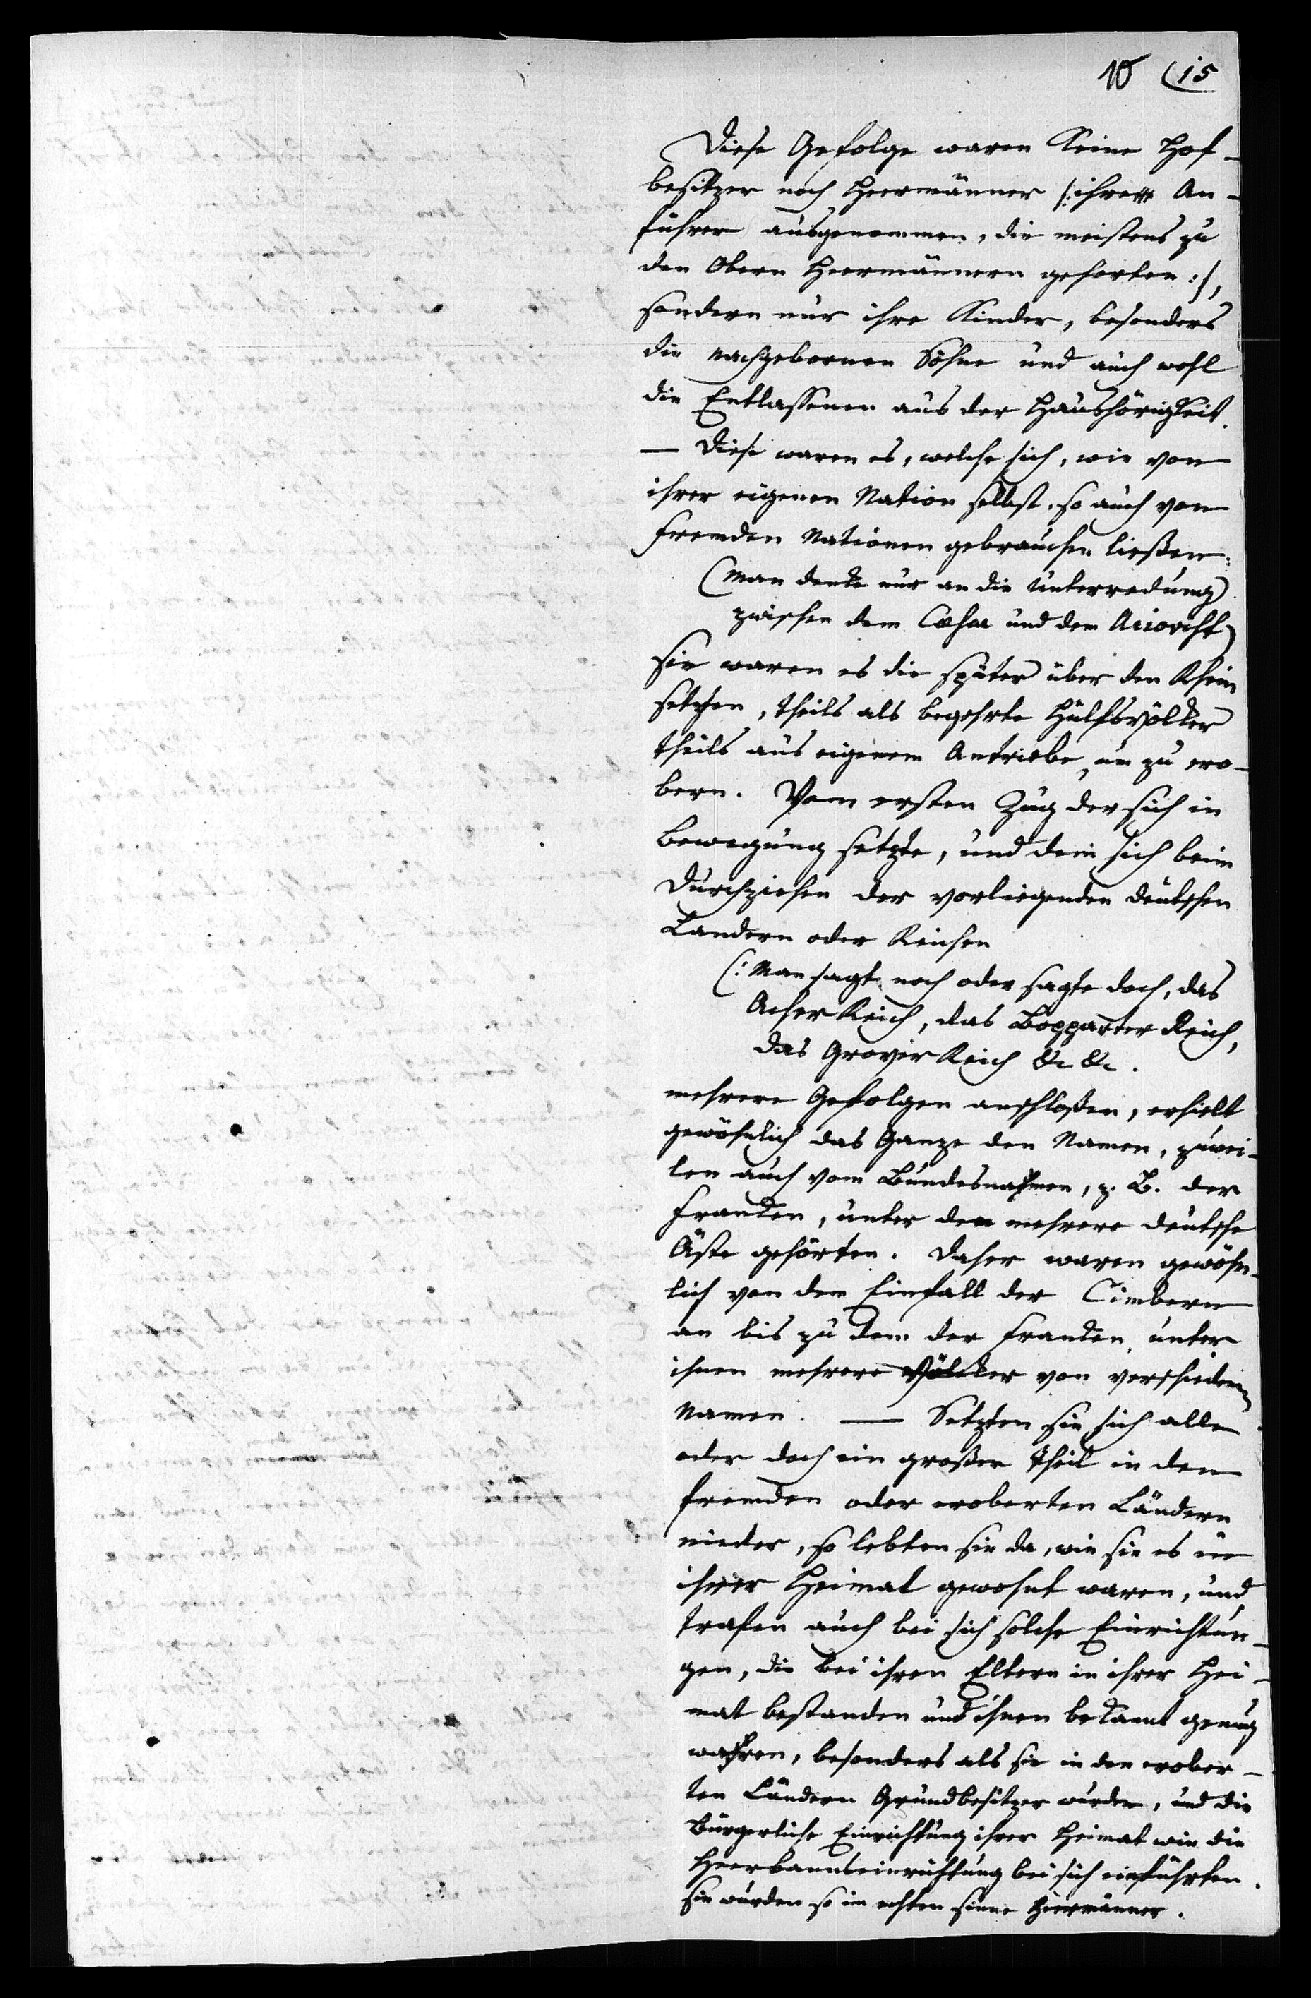 10 (15
Diese Gefolge waren keine Hof-
besitzer noch Heermänner /: ihre An-
führer ausgenommen, die meistens zu
den Obern Heermännern gehorten :/,
sondern nur ihre Kinder, besonders
die nachgebornen Söhne und auch wohl
die Entlassenen aus der Haushörigkeit.
— Diese waren es, welche sich, wie von
ihrer eigenen Nation selbst, so auch von
fremden Nationen gebrauchen ließen:
(Man denke nur an die Unterredung
zwischen dem Cæsar und dem Ariovist)
sie waren es die später über den Rhein
setzten, theils als begehrte Hülfsvölker
theils aus eigenem Antriebe, um zu ero-
bern. Vom ersten Zug der sich in
Bewegung setzte, und dem sich beim
Durchziehen der vorliegenden deutschen
Landern oder Reichen
(: Man sagt noch oder sagte doch, das
Acher Reich, das Bopparter Reich,
das Grover Reich &c &c.
mehrere Gefolgen anschloßen, erhielt
gewöhnlich das Ganze den Namen, zuwei-
len auch vom Bundesnahmen, z. B. der
Franken, unter dem mehrere deutsche
Äste gehörten. Daher waren gewöhn-
lich von dem Einfall der Cimbern
an bis zu dem der Franken, unter
ihnen mehrere Völcker von verschiedenen
Namen. — Setzten sie sich alle
oder doch ein großer Theil in den
fremden oder eroberten Ländern
nieder, so lebten sie da, wie sie es in
ihrer Heimat gewohnt waren, und
trafen auch bei sich solche Einrichtun-
gen, die bei ihren Eltern in ihrer Hei-
mat bestanden und ihnen bekannt genug
wahren, besonders als sie in den erober-
ten Ländern Grundbesitzer wurden, und die
Bürgerliche Einrichtung ihrer Heimat wie die
Heerbannseinrichtung bei sich einführten.
sie wurden so im echten sinne Heermänner.